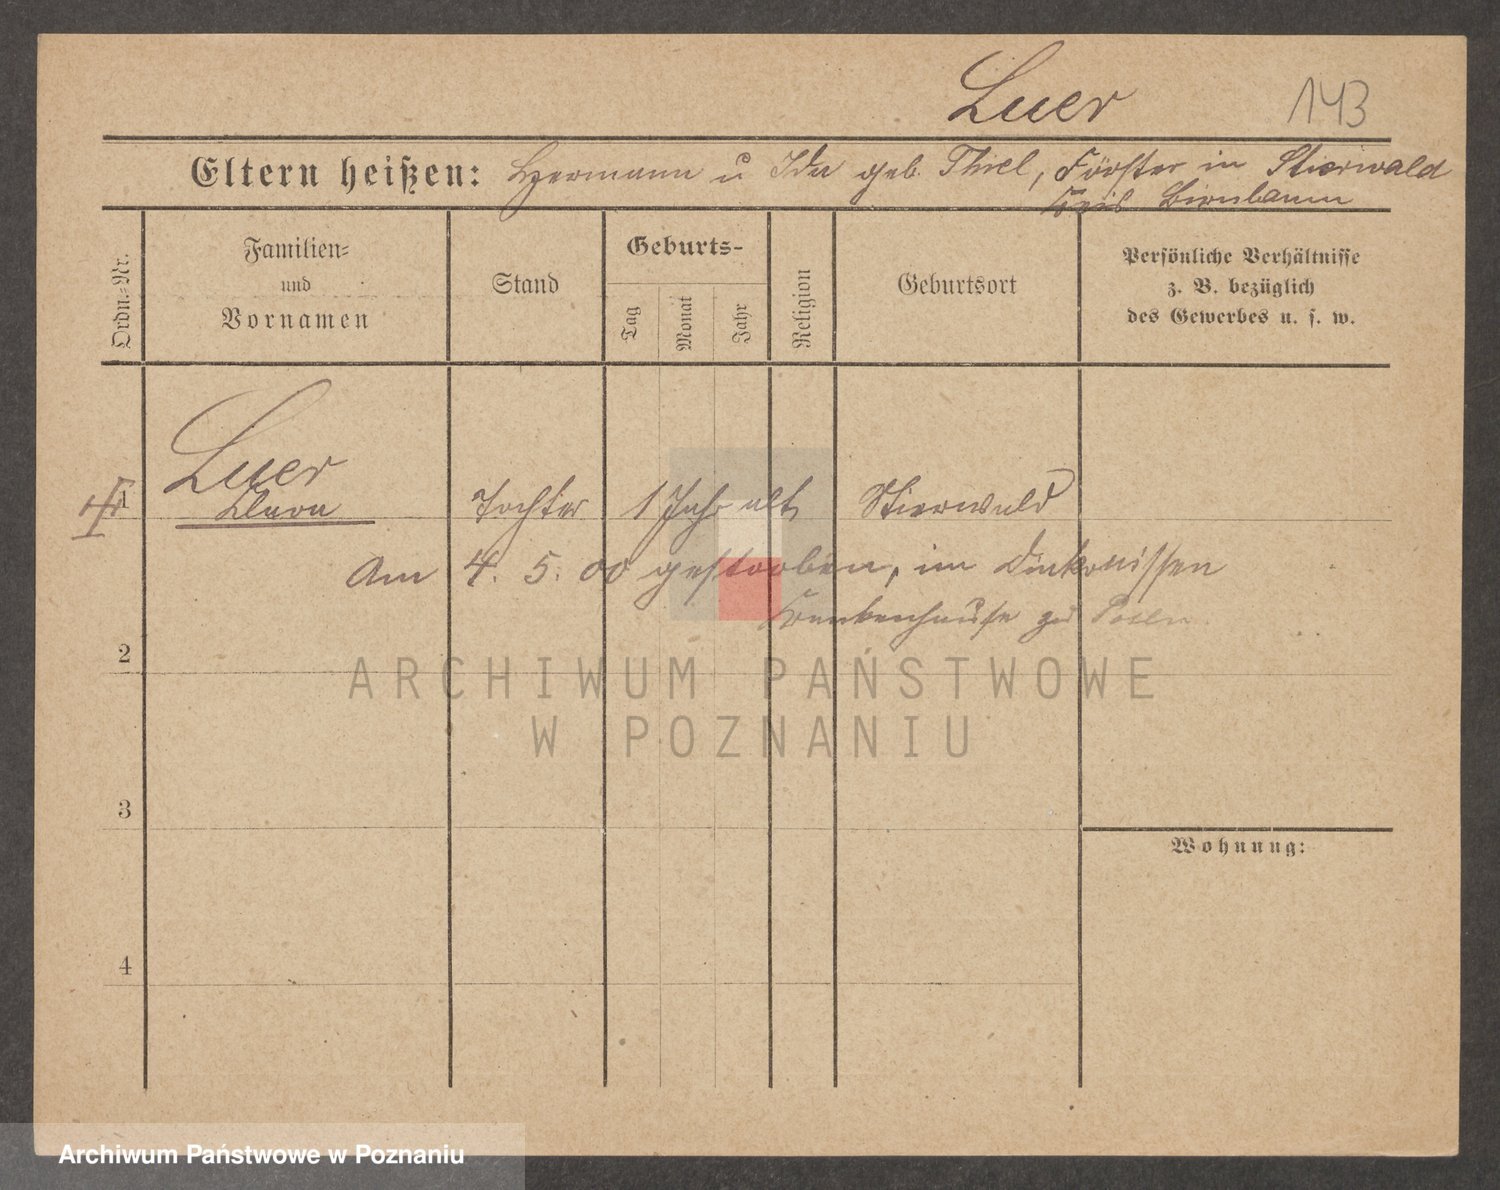 Luer 143
Eltern heißen: Hermann u Ida geb. Thiel, Förster in Stierwald
Kreis Birnbaum
Ordn.-Nr.
Familien-
und
Vornamen
Stand
Geburts-
Tag
Monat
Jahr
Religion
Geburtsort
Persönliche Verhältnisse
z. B. bezüglich
des Gewerbes u. s. w.
Luer
1 Tochter 1 Jahr alt Stierwald
Am 4. 5. 00 gestorben, im Diakonissen
Krankenhause zu Posen
2
ARCHIWUM PAŃSTWOWE
W POZNANIU
3
Wohnung:
4
Archiwum Państwowe w Poznaniu